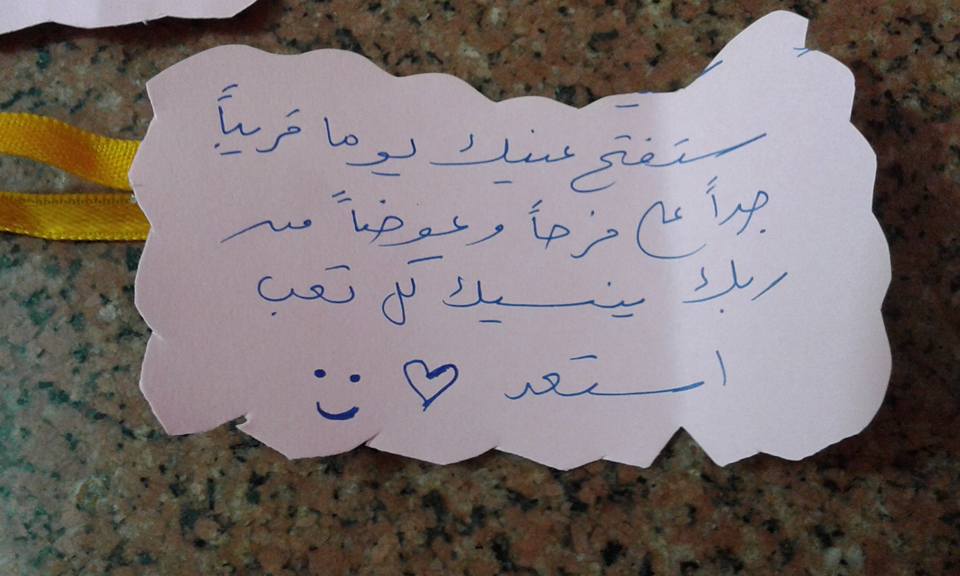 ستفتح عينيك يوما قريباً
جداً على فرحاً وعوضاً من
ربك ينسيك كل تعب
استعد ♡ :)